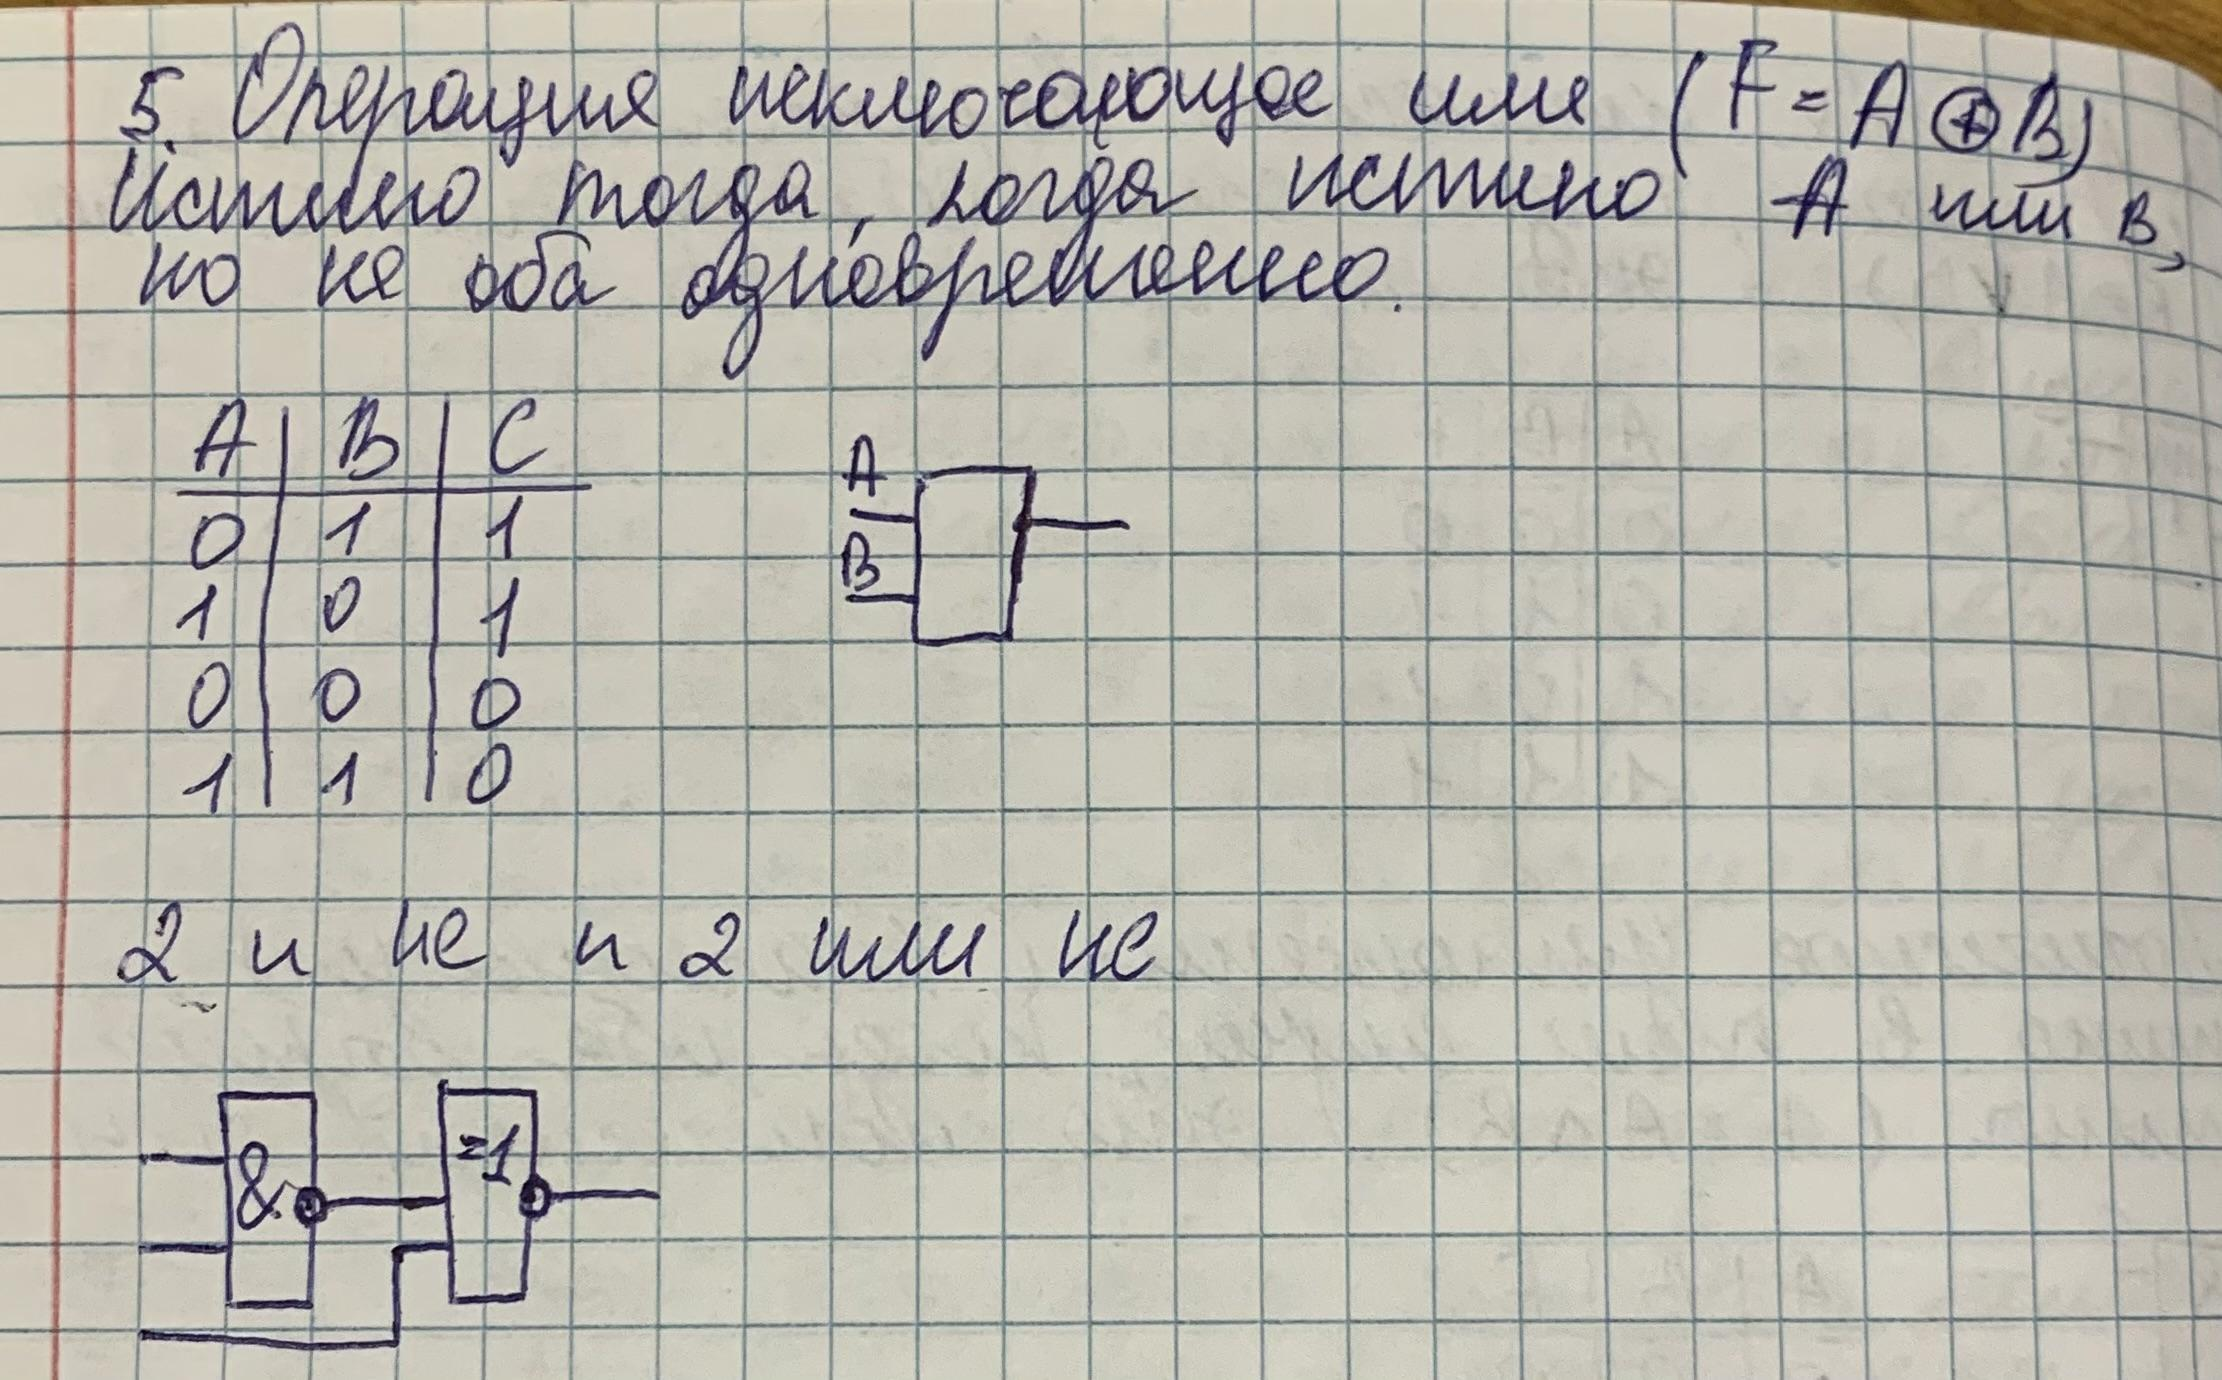 5. Операция исключающее или (F = A ⊕ B)
Истино тогда, когда истино A или B,
но не оба одновременно.
A B C
0 1 1
1 0 1
0 0 0
1 1 0
A
B
2 и не и 2 или не
& =1